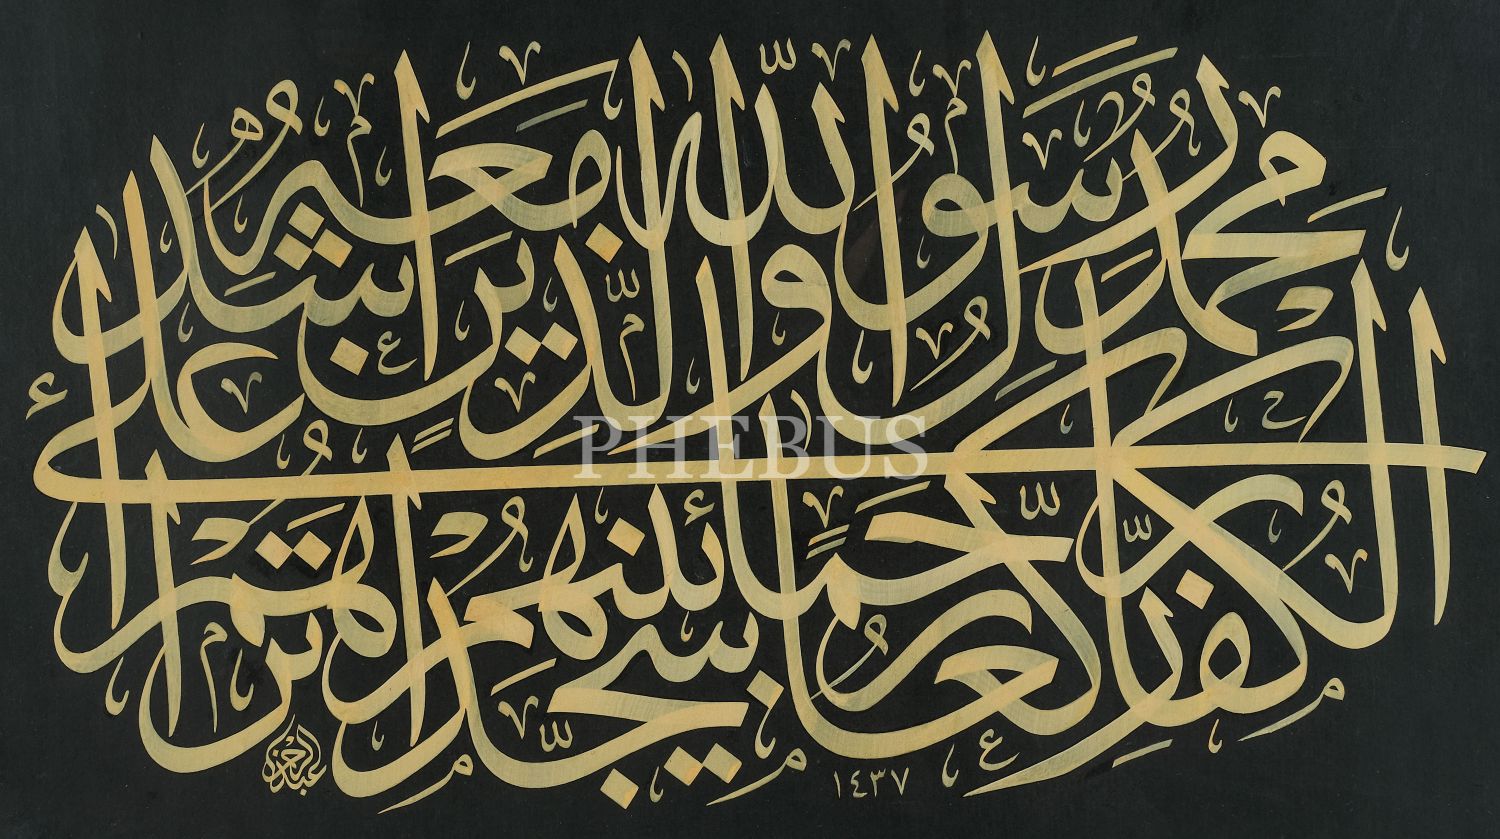 محمد رسول الله والذين معه اشداء على
الكفار رحماء بينهم تراهم ركعا سجدا
١٤٣٧
PHEBUS